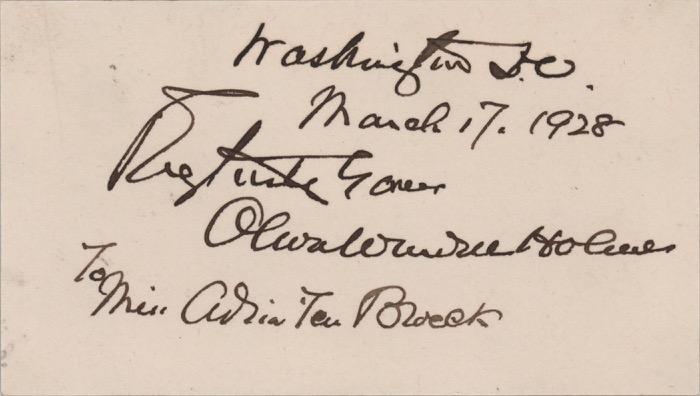 Washington D.C.
March 17. 1928
Very truly Yours
Oliver Wendell Holmes
To
Miss Adria Ten Broeck